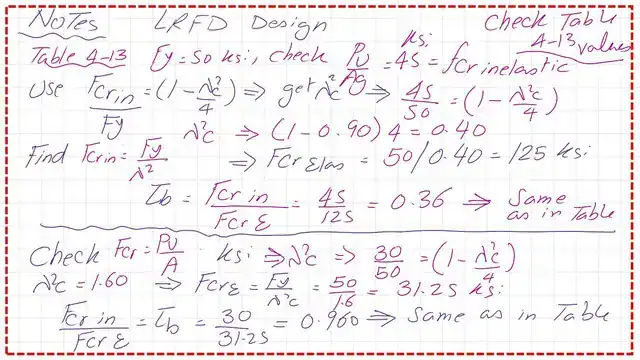 Notes LRFD Design Check Table
A-13 values
Table 4-13 Fy = 50 ksi, check Pu/Ag = 45 ksi = fcr inelastic
Use Fcr in/Fy = (1 - λ²c/4) ⇒ get λ²c ⇒ 45/50 = (1 - λ²c/4)
λ²c ⇒ (1 - 0.90) 4 = 0.40
Find Fcr in = Fy/λ² ⇒ Fcr Elas = 50/0.40 = 125 ksi
τb = Fcr in/Fcr E = 45/125 = 0.36 ⇒ Same as in Table
Check Fcr = Pu/A ksi ⇒ λ²c ⇒ 30/50 = (1 - λ²c/4)
λ²c = 1.60 ⇒ FcrE = Fy/λ²c = 50/1.6 = 31.25 ksi
Fcr in/Fcr E = τb = 30/31.25 = 0.960 ⇒ Same as in Table